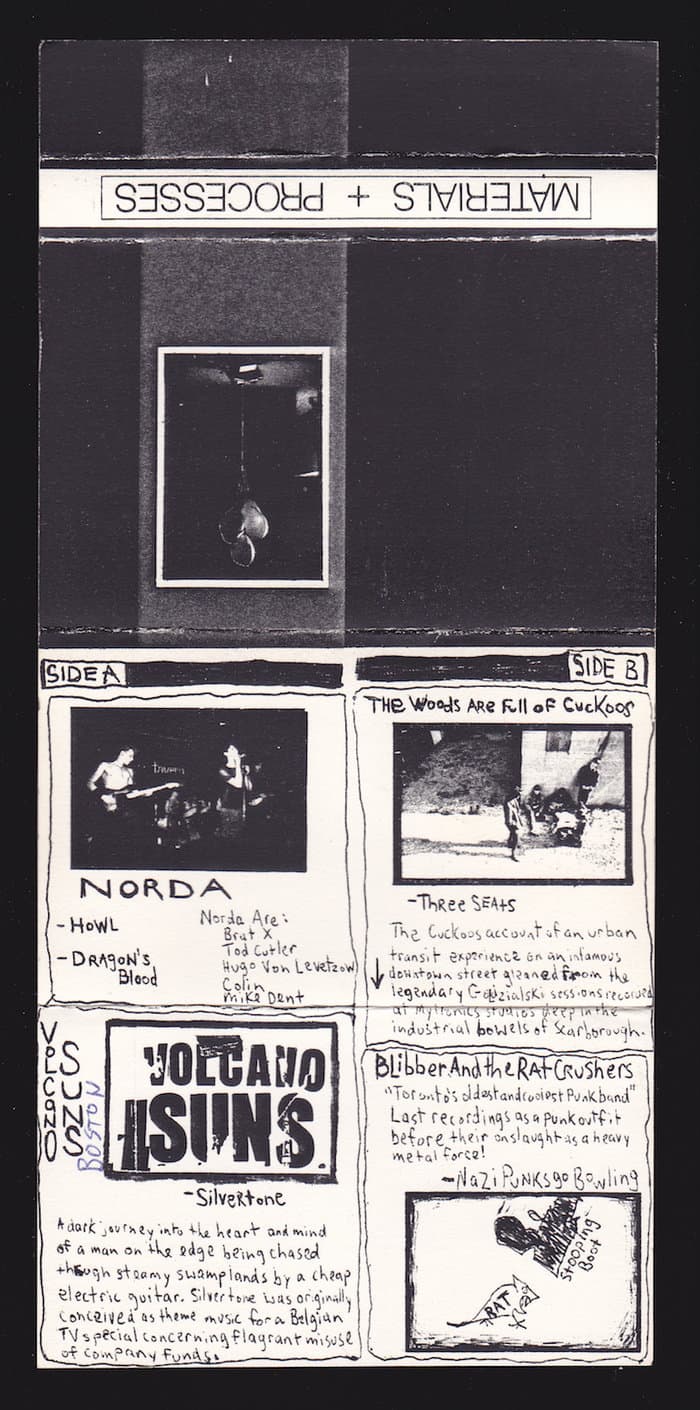 MATERIALS + PROCESSES
SIDE A
tavern
NORDA
- HOWL
- DRAGON'S
Blood
Norda Are:
Brat X
Tod Cutler
Hugo Von Levetzow
Colin
Mike Dent
VOLCANO
SUNS
BOSTON
VOLCANO
SUNS.
- Silvertone
A dark journey into the heart and mind
of a man on the edge being chased
through steamy swamplands by a cheap
electric guitar. Silvertone was originally
conceived as theme music for a Belgian
TV special concerning flagrant misuse
of company funds.
SIDE B
THE Woods ARe Full of CucKoos
- THRee SEAtS
The Cuckoos account of an urban
transit experience on an infamous
downtown street gleaned from the
legendary Godzialski sessions recorded
at Mytronics studios deep in the
industrial bowels of Scarborough.
BLibber And the RAt CRushers
"Toronto's oldest and coolest Punk band"
Last recordings as a punk outfit
before their onslaught as a heavy
metal force!
- Nazi PUNKS go Bowling
Stooping
Boot
RAT